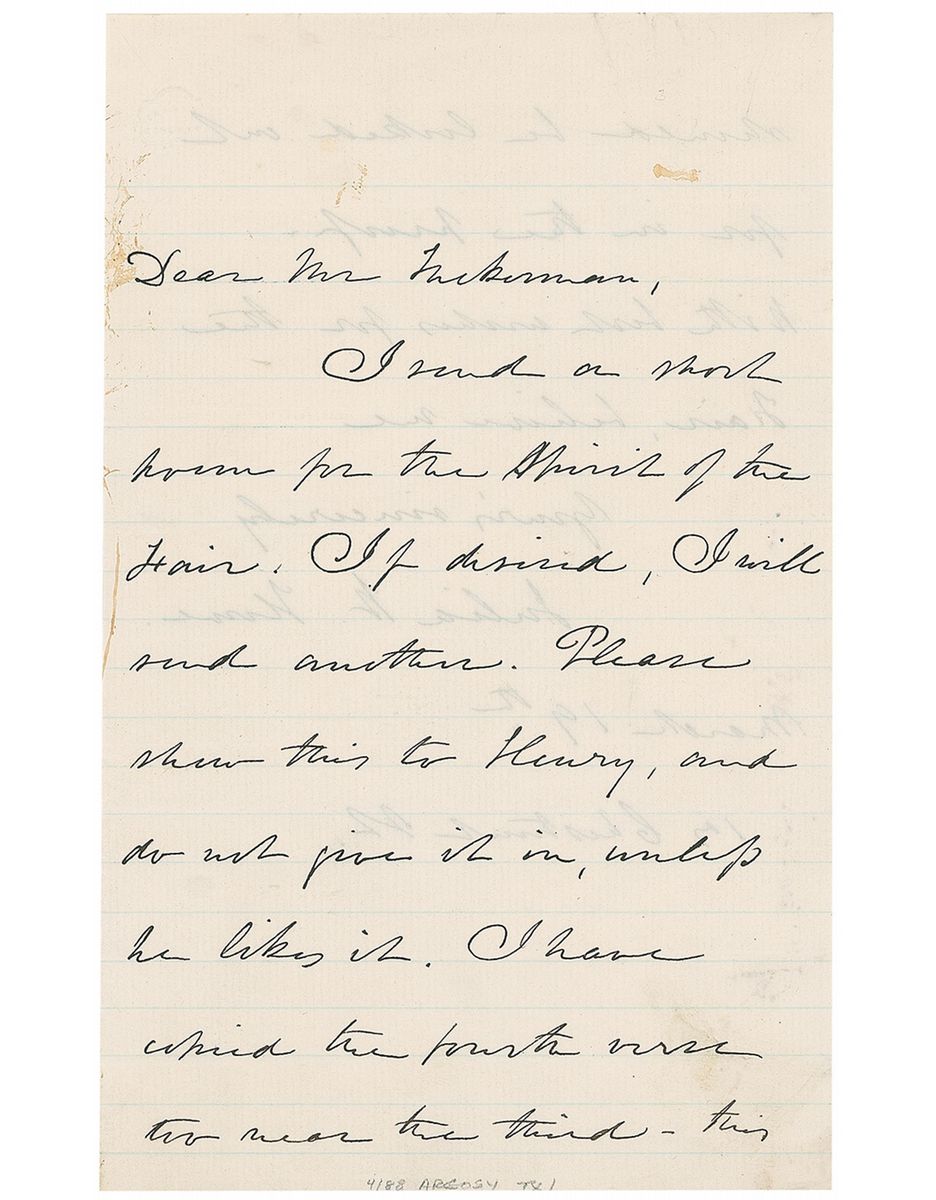 Dear Mr Tuckerman,
I send a short
poem for the Spirit of the
Fair. If desired, I will
send another. Please
show this to Henry, and
do not give it in, unless
he likes it. I have
copied the fourth verse
too near the third - this
4/88 ARGOSY